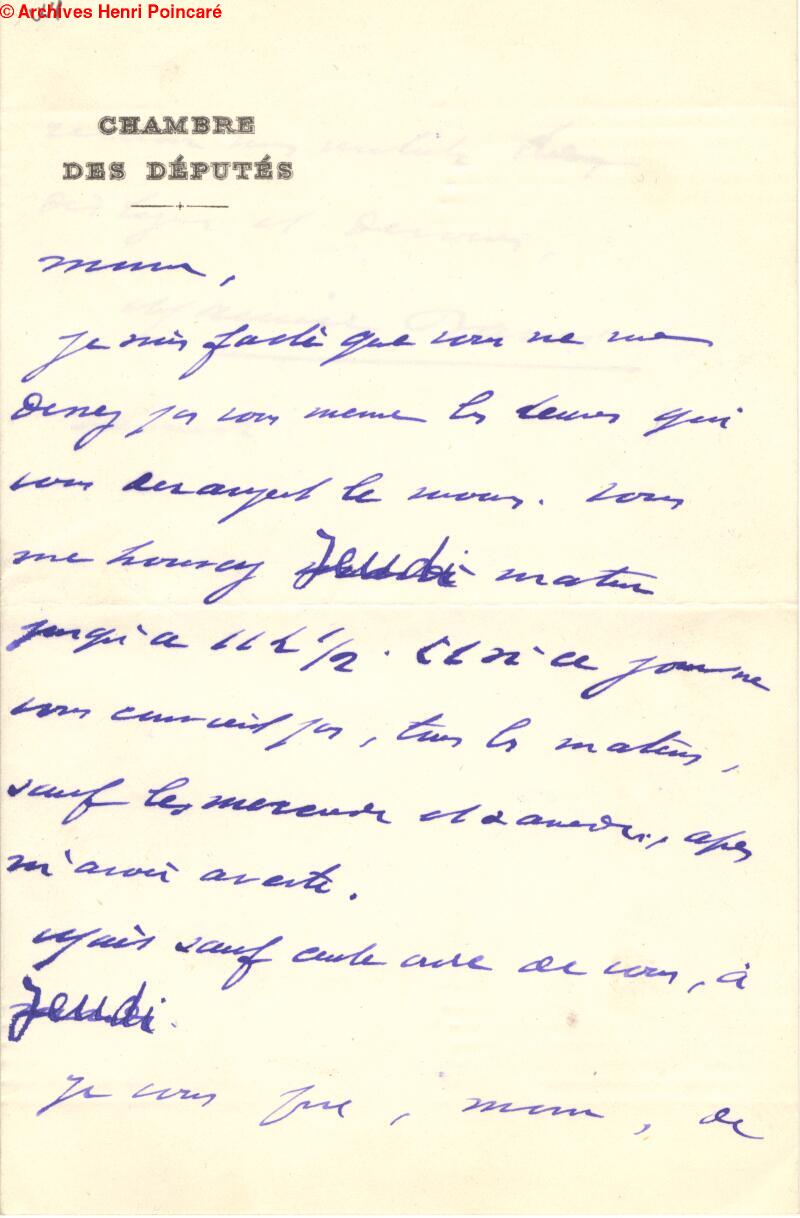 © Archives Henri Poincaré
CHAMBRE
DES DÉPUTÉS
je suis faché que vous ne me
pas vous meme les heures qui
vous derangent le moins. Vous
me trouverez Jeudi matin
jusqu'à 11 h 1/2. Et si ce jour ne
vous convient pas, tous les matins,
sauf les mercredi et samedi, apres
m'avoir averti.
Mais sauf contre avis de vous, à
Jeudi.
Je vous prie, de